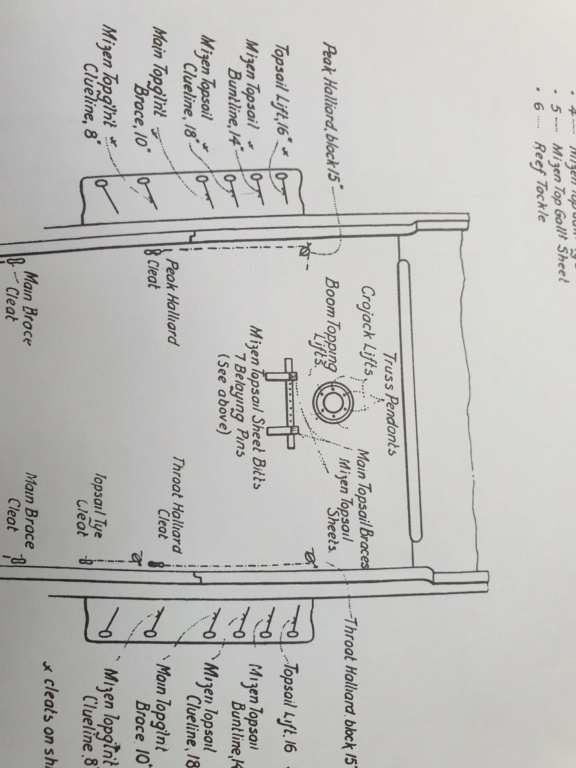 • 4 .... Mizen Top
• 5 .... Mizen Top Gallt Sheet
• 6 .... Reef Tackle
Peak Halliard, block 15"
Topsail Lift, 16" x
Mizen Topsail x
Buntline, 14"
Mizen Topsail x
Clueline, 18"
Main Topg'l'nt x
Brace, 10"
Mizen Topg'l'nt
Clueline, 8"
Truss Pendants
Crojack Lifts
Boom Topping
Lifts
Main Topsail Braces
Mizen Topsail
Sheets.
Mizen Topsail Sheet Bitts
7 Belaying Pins
(See above)
Peak Halliard
Cleat
Throat Halliard
Cleat
Topsail Tye
Cleat
Main Brace
Cleat
Main Brace
Cleat
Throat Halliard, block 15"
Topsail Lift, 16
Mizen Topsail
Buntline, 14
Mizen Topsail
Clueline, 18
Main Topg'l'nt
Brace 10"
Mizen Topg'l'nt
Clueline, 8"
x cleats on sh